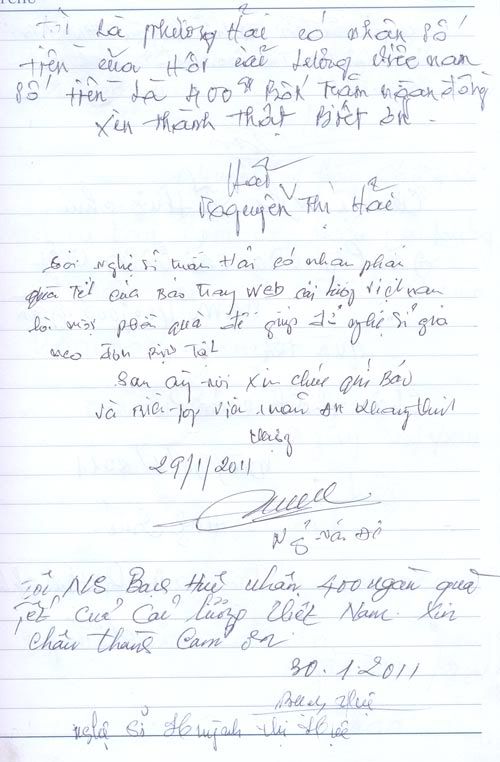 Tôi Là phượng Hải có nhân số
tiền của Hội cải lương việc nam
số tiền Là 400đ Bốn trăm ngàn đồng
xin thành thật Biết ơn.
Hải
Nguyễn Thị Hải
Gởi nghệ sĩ tuấn Hải có nhân phần
quà Tết của Báo Trang Web cải lương việt nam
là một phần quà để giúp đỡ nghệ sĩ già
neo đơn
xin chúc quí Báo
và Biên-tập viên luôn
29/1/2011
Tôi NS Bạch Huệ nhận 400 ngàn quà
Tết của Cải lương Việt Nam. Xin
chân thành Cảm ơn
30.1.2011
Bạch Huệ
nghệ sĩ Huỳnh thị Huệ